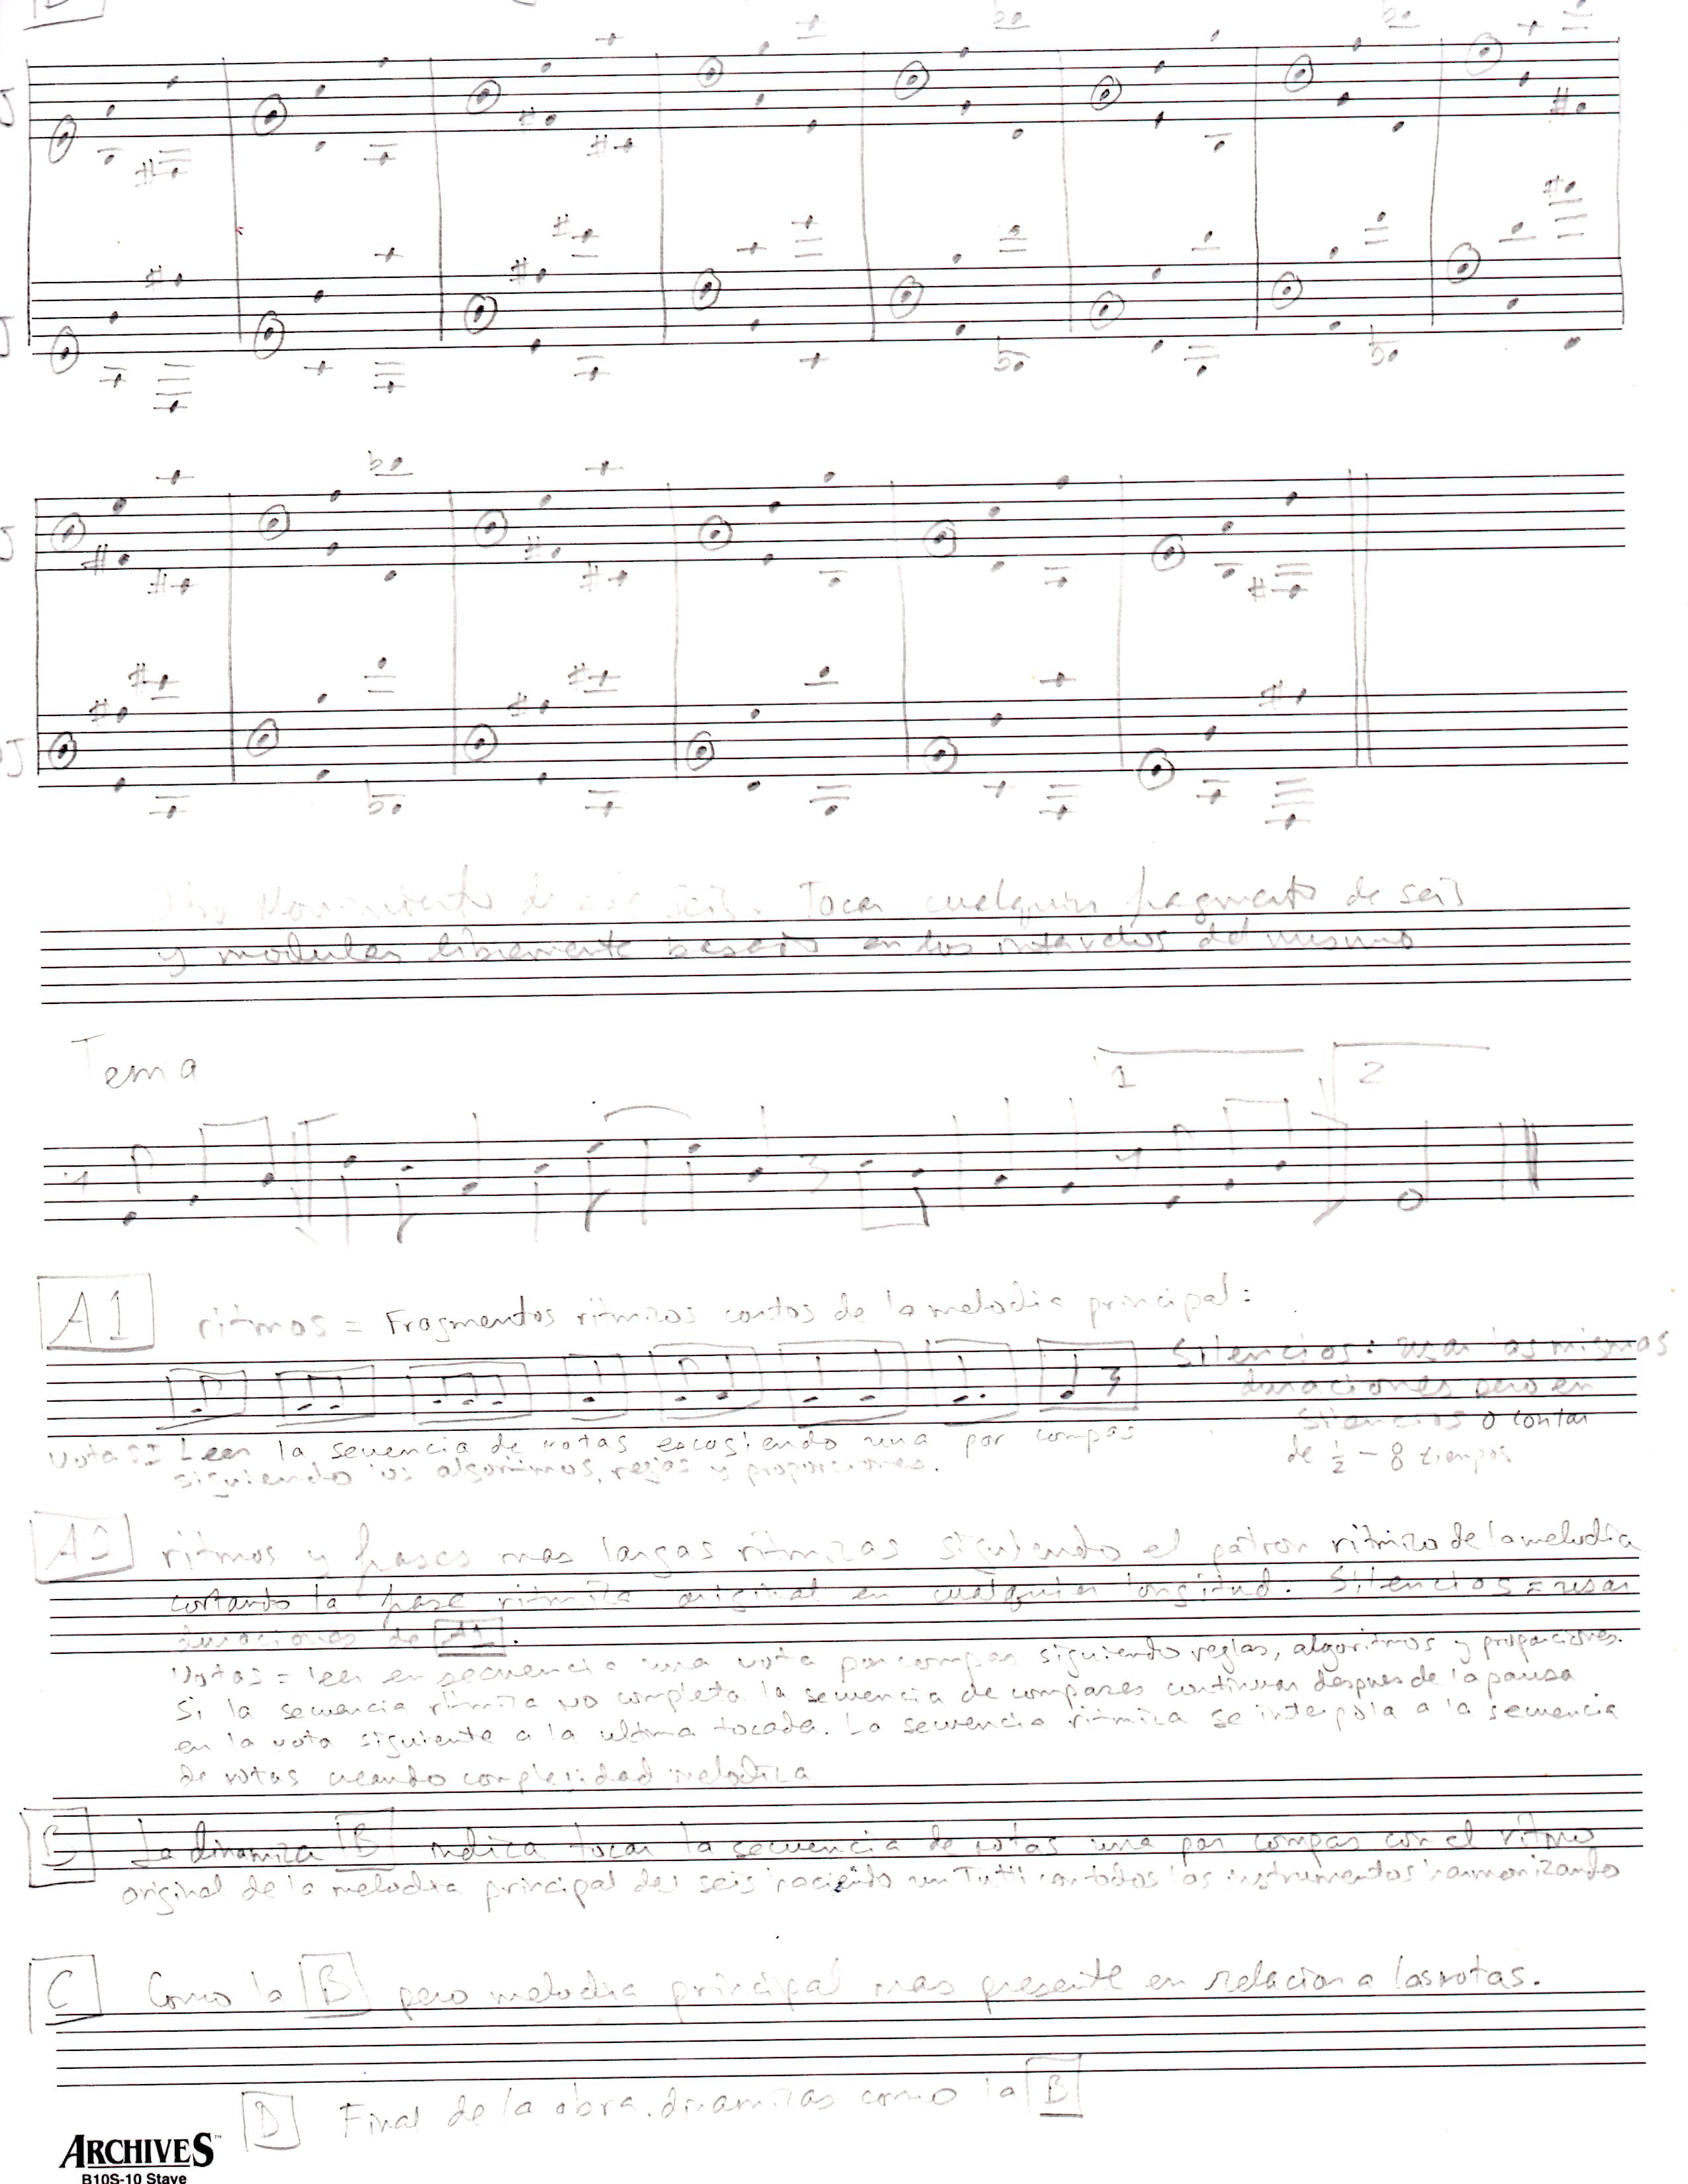 Movimiento de seis. Tocar cualquier fragmento de seis
y modular libremente basado en los intervalos del mismo
Tema
1
2
A1 ritmos = Fragmentos ritmicos cortos de la melodia principal:
Silencios: usar las mismas
duraciones pero en
silencios o contar
de 1/2 - 8 tiempos
Notas = Leer la secuencia de notas escogiendo una por compas
siguiendo los algoritmos, reglas y proporciones.
A2 ritmos y frases mas largas ritmicas siguiendo el patron ritmico de la melodia
cortando la frase ritmica original en cualquier longitud. Silencios = usar
duraciones de A1.
Notas = leer en secuencia una nota por compas siguiendo reglas, algoritmos y proporciones.
Si la secuencia ritmica no completa la secuencia de compases continuar despues de la pausa
en la nota siguiente a la ultima tocada. La secuencia ritmica se interpola a la secuencia
de notas creando complejidad melodica
B La dinamica B indica tocar la secuencia de notas una por compas con el ritmo
original de la melodia principal del seis haciendo un Tutti con todos los instrumentos harmonizando
C Como la B pero melodia principal mas presente en relacion a las notas.
D Final de la obra. dinamicas como la B
ARCHIVES™
B10S-10 Stave